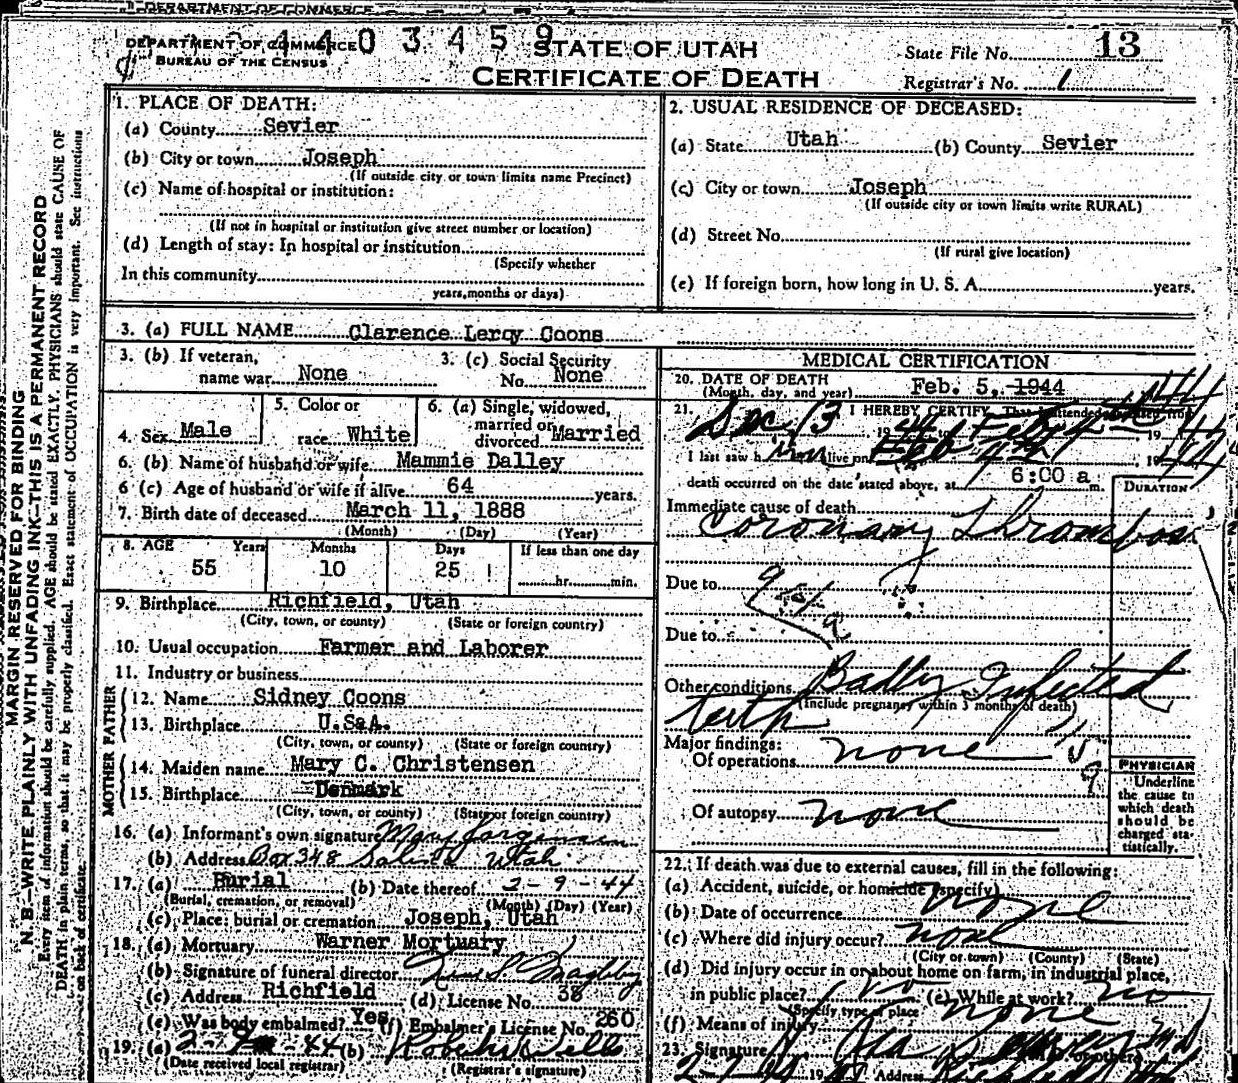 DEPARTMENT OF COMMERCE
DEPARTMENT OF COMMERCE
BUREAU OF THE CENSUS
4403459
STATE OF UTAH
CERTIFICATE OF DEATH
State File No. 13
Registrar's No. 1
MARGIN RESERVED FOR BINDING
N. B.—WRITE PLAINLY WITH UNFADING INK—THIS IS A PERMANENT RECORD
Every item of information should be carefully supplied. AGE should be stated EXACTLY. PHYSICIANS should state CAUSE OF
DEATH in plain terms, so that it may be properly classified. Exact statement of OCCUPATION is very important. See instructions
on back of certificate.
1. PLACE OF DEATH:
(a) County Sevier
(b) City or town Joseph
(If outside city or town limits name Precinct)
(c) Name of hospital or institution:
(If not in hospital or institution give street number or location)
(d) Length of stay: In hospital or institution
(Specify whether
In this community
years, months or days)
2. USUAL RESIDENCE OF DECEASED:
(a) State Utah (b) County Sevier
(c) City or town Joseph
(If outside city or town limits write RURAL)
(d) Street No.
(If rural give location)
(e) If foreign born, how long in U. S. A. years.
3. (a) FULL NAME Clarence Leroy Coons
3. (b) If veteran, name war None
3. (c) Social Security No. None
4. Sex Male
5. Color or race White
6. (a) Single, widowed, married or divorced Married
6. (b) Name of husband or wife Mammie Dalley
6 (c) Age of husband or wife if alive 64 years.
7. Birth date of deceased March 11, 1888
(Month) (Day) (Year)
8. AGE Years Months Days If less than one day
55 10 25 hr. min.
9. Birthplace Richfield, Utah
(City, town, or county) (State or foreign country)
10. Usual occupation Farmer and Laborer
11. Industry or business
FATHER
12. Name Sidney Coons
13. Birthplace U.S.A.
(City, town, or county) (State or foreign country)
MOTHER
14. Maiden name Mary C. Christensen
15. Birthplace Denmark
(City, town, or county) (State or foreign country)
16. (a) Informant's own signature Mary Jorgensen
(b) Address Box 348 Salina Utah
17. (a) Burial (b) Date thereof 2-9-44
(Burial, cremation, or removal) (Month) (Day) (Year)
(c) Place: burial or cremation Joseph, Utah
18. (a) Mortuary Warner Mortuary
(b) Signature of funeral director
(c) Address Richfield (d) License No. 38
(e) Was body embalmed? Yes (f) Embalmer's License No. 260
19. (a) 2-7-44 (b)
(Date received local registrar) (Registrar's signature)
MEDICAL CERTIFICATION
20. DATE OF DEATH Feb. 5, 1944
(Month, day, and year)
21. I HEREBY CERTIFY, That I attended deceased from
Dec 13 19 44 to Feb
I last saw him alive on Feb 19 44
death occurred on the date stated above, at 6:00 a m.
DURATION
Immediate cause of death
Coronary Thrombosis
Due to
Due to
Other conditions Badly Infected
teeth
(Include pregnancy within 3 months of death)
Major findings:
Of operations none
Of autopsy none
PHYSICIAN
Underline
the cause to
which death
should be
charged sta-
tistically.
22. If death was due to external causes, fill in the following:
(a) Accident, suicide, or homicide (specify) none
(b) Date of occurrence
(c) Where did injury occur? none
(City or town) (County) (State)
(d) Did injury occur in or about home on farm, in industrial place,
in public place? no (e) While at work? no
(Specify type of place)
(f) Means of injury none
23. Signature M.D. or other
2-7-44 19 Address Richfield Utah